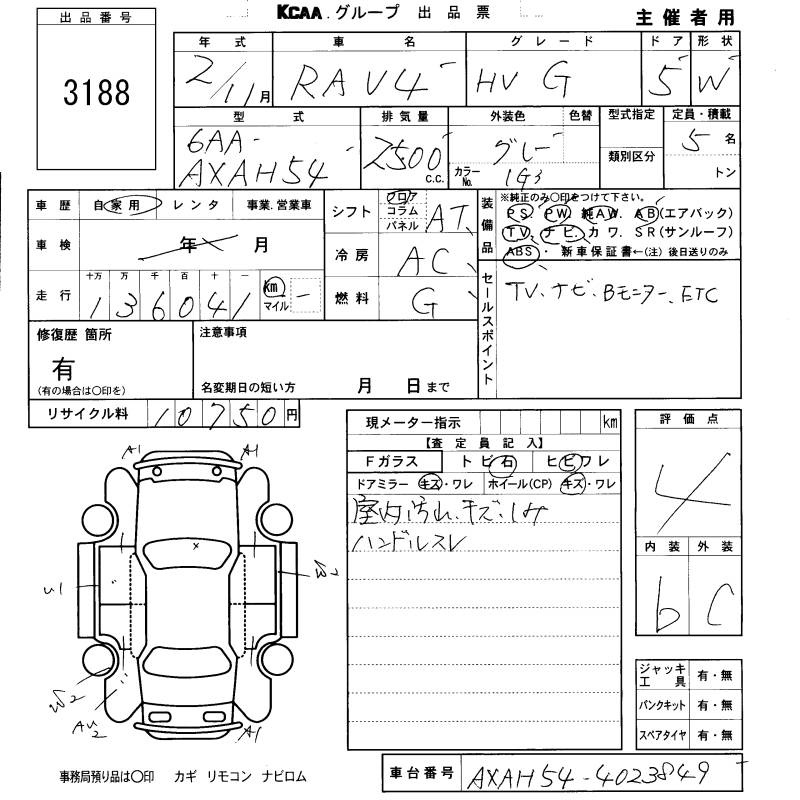 KCAA.グループ 出品票
主催者用
出品番号
3188
年式 車名 グレード ドア 形状
2/11月 RAV4 HV G 5 W
型式 排気量 外装色 色替 型式指定 定員・積載
6AA-
AXAH54 2500 C.C. グレー 5名
カラーNo. 1G3 類別区分 トン
車歴 自家用 レンタ 事業.営業車
車検 年 月
走行 十万 万 千 百 十 一
136041 km マイル
シフト フロア コラム パネル AT
冷房 AC
燃料 G
装備品
※純正のみ○印をつけて下さい。
PS. PW. 純AW. AB(エアバック)
TV. ナビ. カワ. SR(サンルーフ)
ABS・新車保証書←(注)後日送りのみ
セールスポイント
TV、ナビ、Bモニター、ETC
修復歴 箇所
有
(有の場合は○印を)
注意事項
名変期日の短い方 月 日まで
リサイクル料 10750円
現メーター指示 km
【査定員記入】
Fガラス トビ石 ヒビワレ
ドアミラー キズ・ワレ ホイール(CP) キズ・ワレ
室内汚れ、キズ、シミ
ハンドルスレ
評価点
4
内装 外装
b C
A1 A1
U1
W2
AU2
A1
ジャッキ工具 有・無
パンクキット 有・無
スペアタイヤ 有・無
事務局預り品は○印 カギ リモコン ナビロム
車台番号 AXAH54-4023849